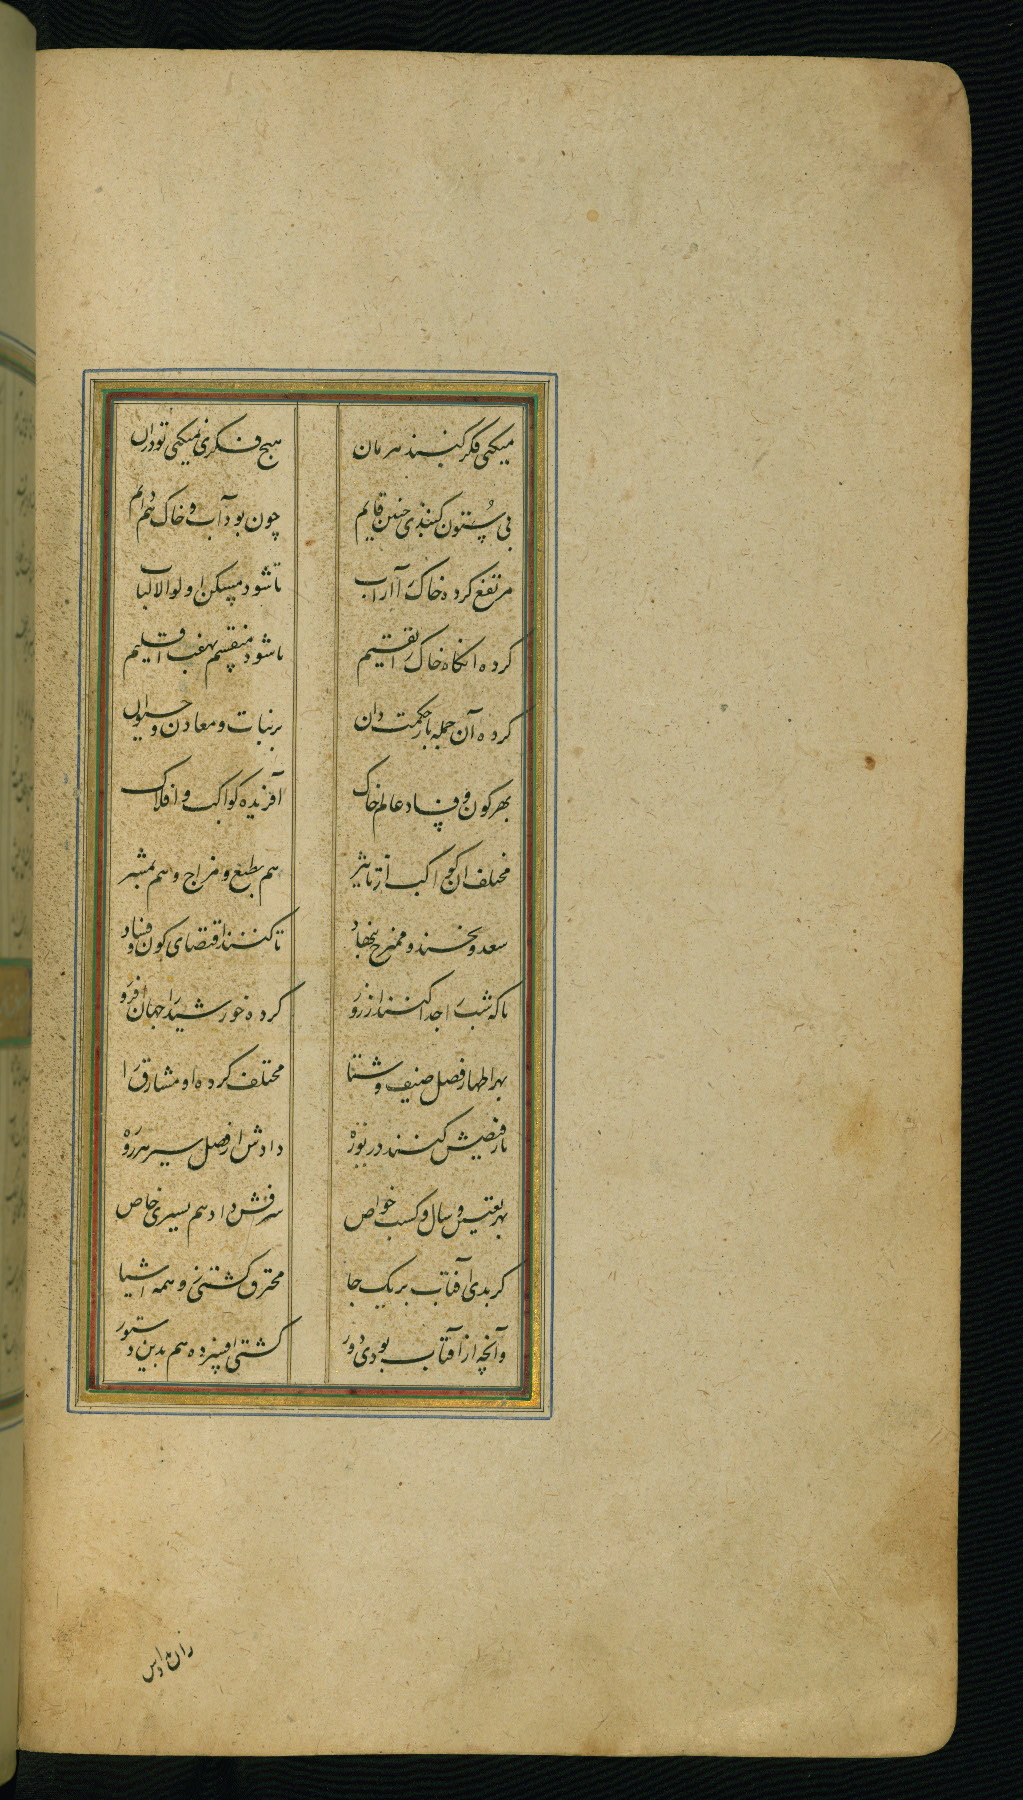 میکنی فکر کنبد هرمان هیچ فکری نمیکنی تو دران
بی ستون کنبدی چنین قایم چون بود آب و خاک هم دایم
مرتفع کرده خاک را از آب تا شود مسکن اولوا الالباب
کرده انکاه خاک را تقسیم تا شود منقسم بهفت اقلیم
کرده آن جمله را ز حکمت دان بر نبات و معادن و حیوان
بهر کون و فساد عالم خاک آفریده کواکب و افلاک
مختلف ان کواکب از تاثیر هم بطبع و مزاج و هم بمشیر
سعد و نحسند و ممتزج بنهاد تا کنند اقتضای کون و فساد
تا که شب را جدا کنند از روز کرده خورشید را جهان افروز
بهر اظهار فصل صیف و شتا مختلف کرده او مشارق را
تا ز فیضش کنند دریوزه دادش از فضل سیر هر روزه
بهر تعیین سال و کسب خواص شرفش داد هم بسیری خاص
کر بدی آفتاب بر یک جا محترق کشتنی همه اشیا
وآنچه از آفتاب بودی دور کشتی افسرده هم بدین دستور
زان مدارس